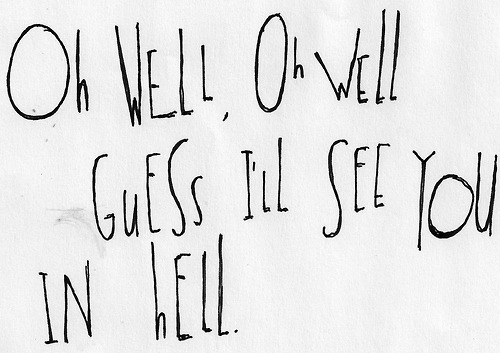 Oh WELL, Oh WEll
GuESS I'll SEE YOU
IN hEll.